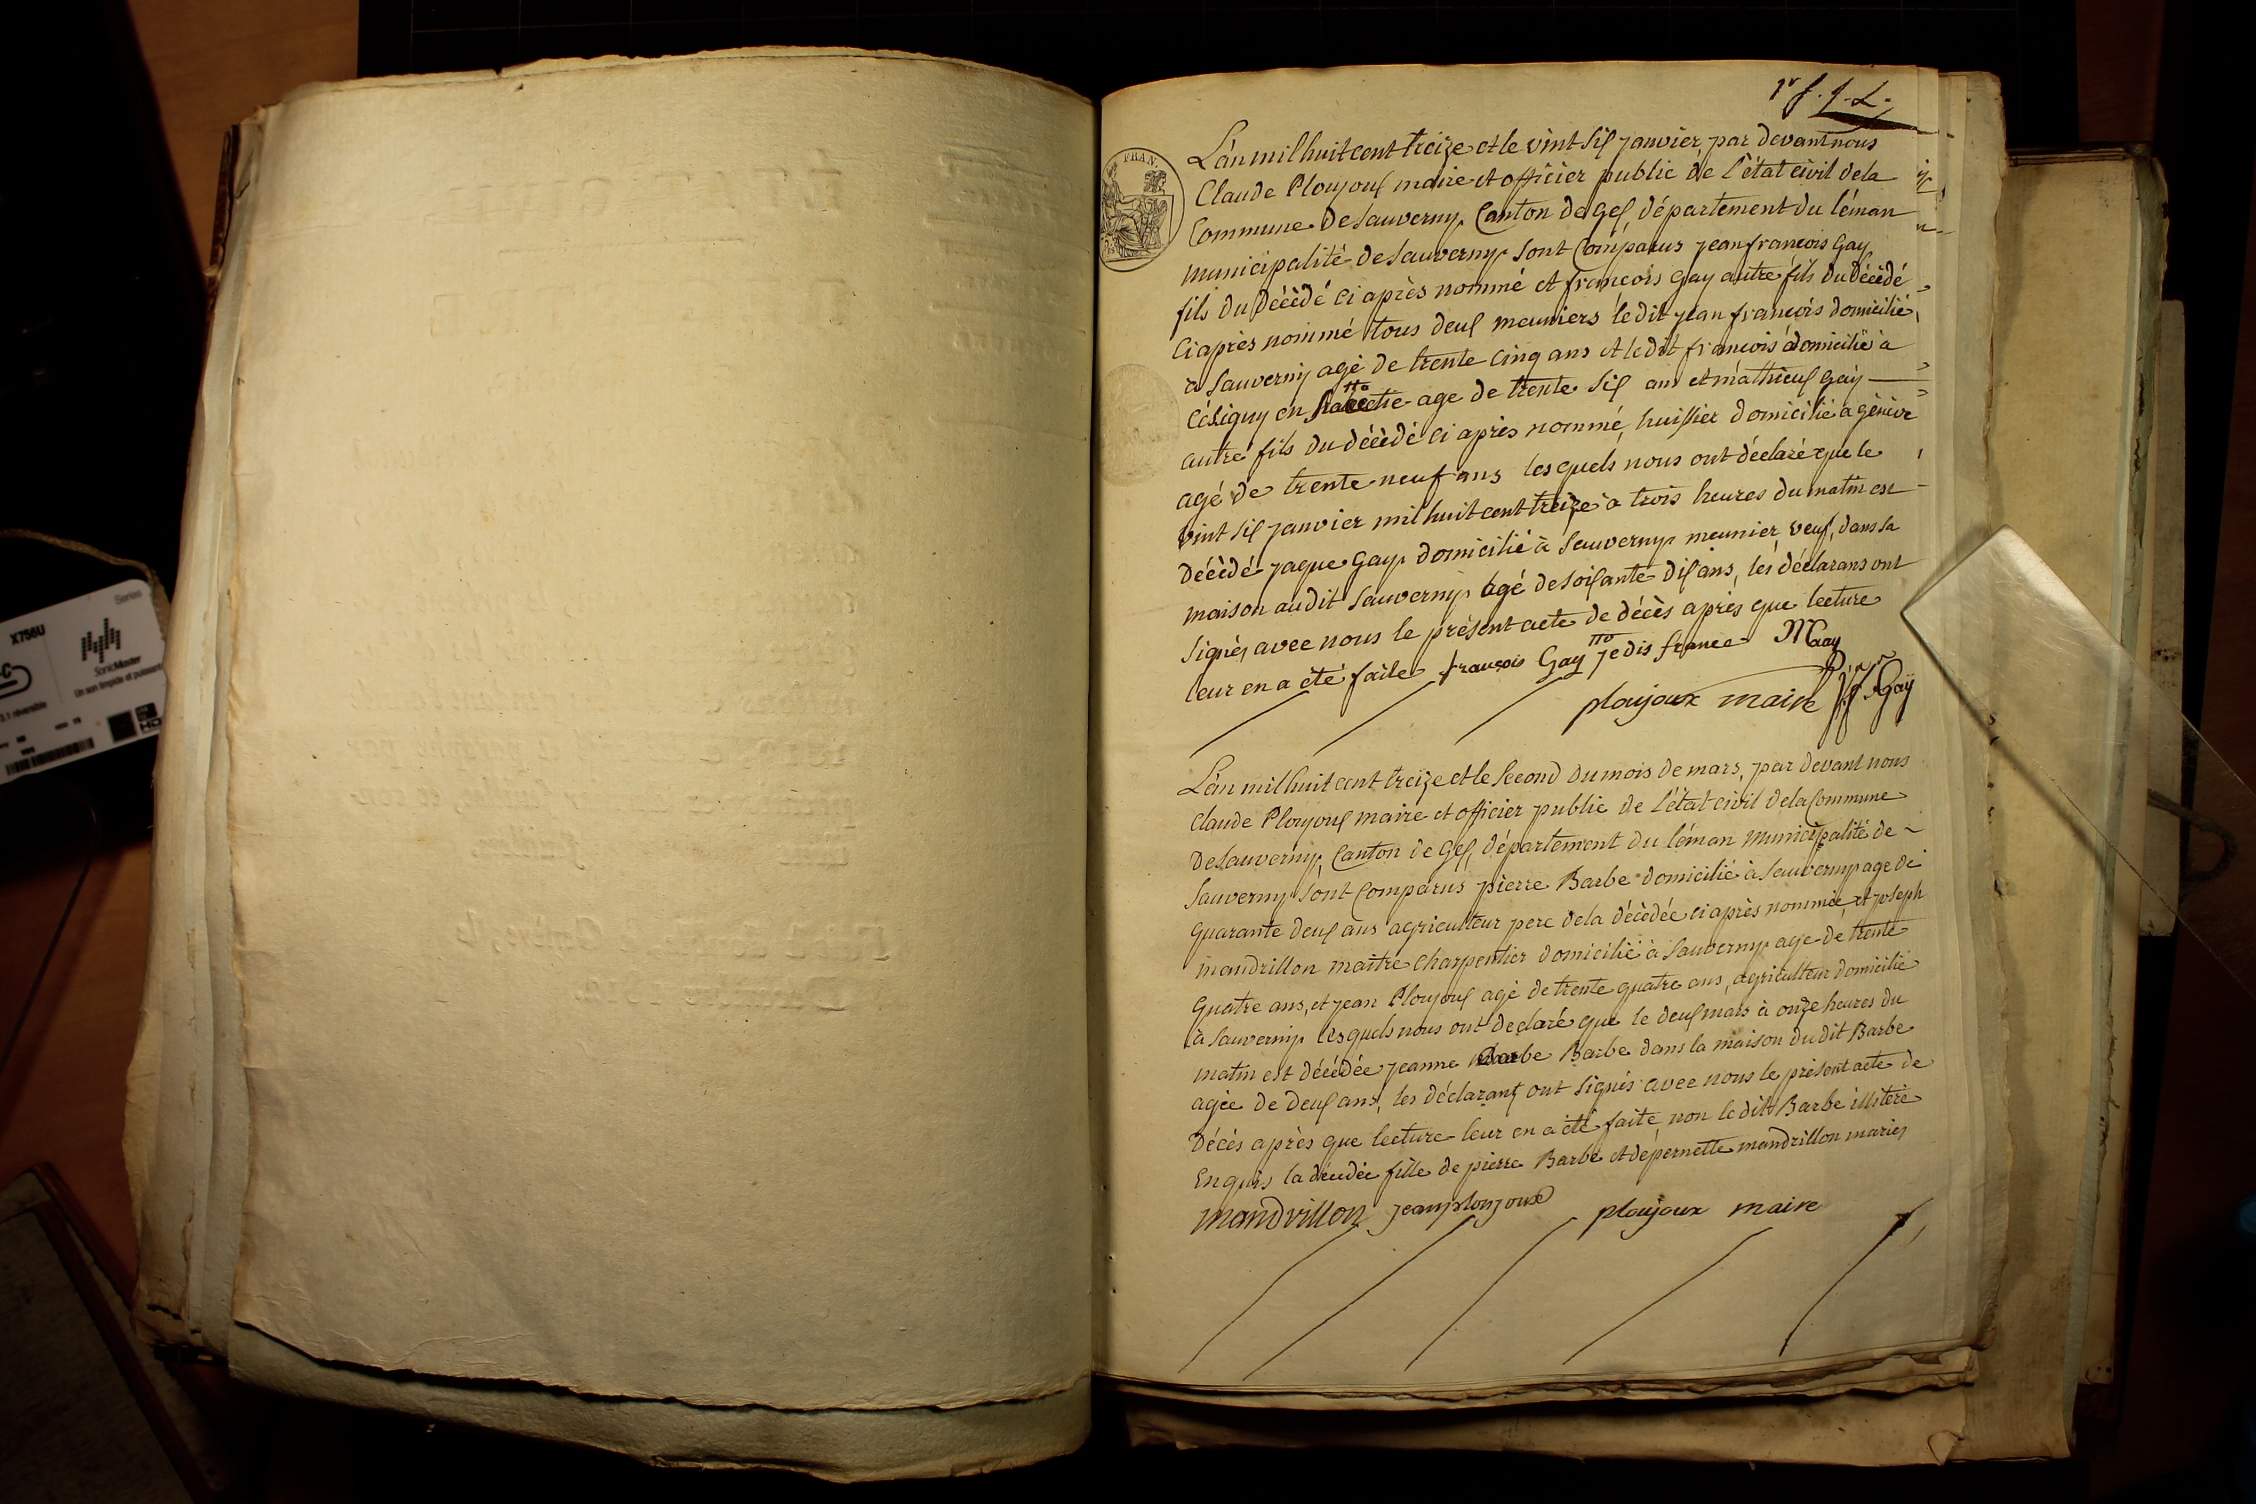 1r f. J. L.
FRAN.
L'an mil huit cent treize et le vint six janvier, par devant nous
Claude Ploujoux maire et officier public de l'état civil de la
Commune de Sauverny, Canton de Gex département du léman
municipalité de Sauverny sont Comparus jean françois Gay
fils du décèdé ci après nommé et françois Gay autre fils du décédé
ci après nommé tous deux meuniers le dit jean françois domicilié
à Sauverny agé de trente cinq ans et le dit françois domicilié à
Céligny en age de trente six ans et mathieux Gay
autre fils du décèdé ci après nommé, huissier domicilié a génève
agé de trente neuf ans lesquels nous ont déclaré que le
vint six janvier mil huit cent treize à trois heures du matin est
décèdé jaque Gay domicilié à Sauverny meunier, veuf, dans sa
maison au dit Sauverny agé de soixante dix ans, les déclarans ont
signés avec nous le présent acte de décès après que lecture
leur en a été faite françois Gay je dis france MGay
ploujoux maire j.f. Gaÿ
L'an mil huit cent treize et le second du mois de mars, par devant nous
Claude Ploujoux maire et officier public de l'état civil de la Commune
de Sauverny, Canton de Gex, département du léman municipalité de
Sauverny sont Comparus pierre Barbe domicilié à Sauverny age de
quarante deux ans agriculteur pere de la décèdée ci après nommée et joseph
mandrillon maitre charpentier domicilié à Sauverny age de trente
quatre ans, et jean Ploujoux agé de trente quatre ans, agriculteur domicilié
à Sauverny lesquels nous ont declaré que le deux mars à onze heures du
matin est décédée jeanne Barbe dans la maison du dit Barbe
agée de deux ans, les déclarans ont signés avec nous le présent acte de
décès après que lecture leur en a été faite, non le dit Barbe illitéré
Enquis la décédée fille de pierre Barbe et de pernette mandrillon mariés
mandrillon jean ploujoux ploujoux maire
X756U
Series
SonicMaster
Un son limpide et puissant
3.1 réversible